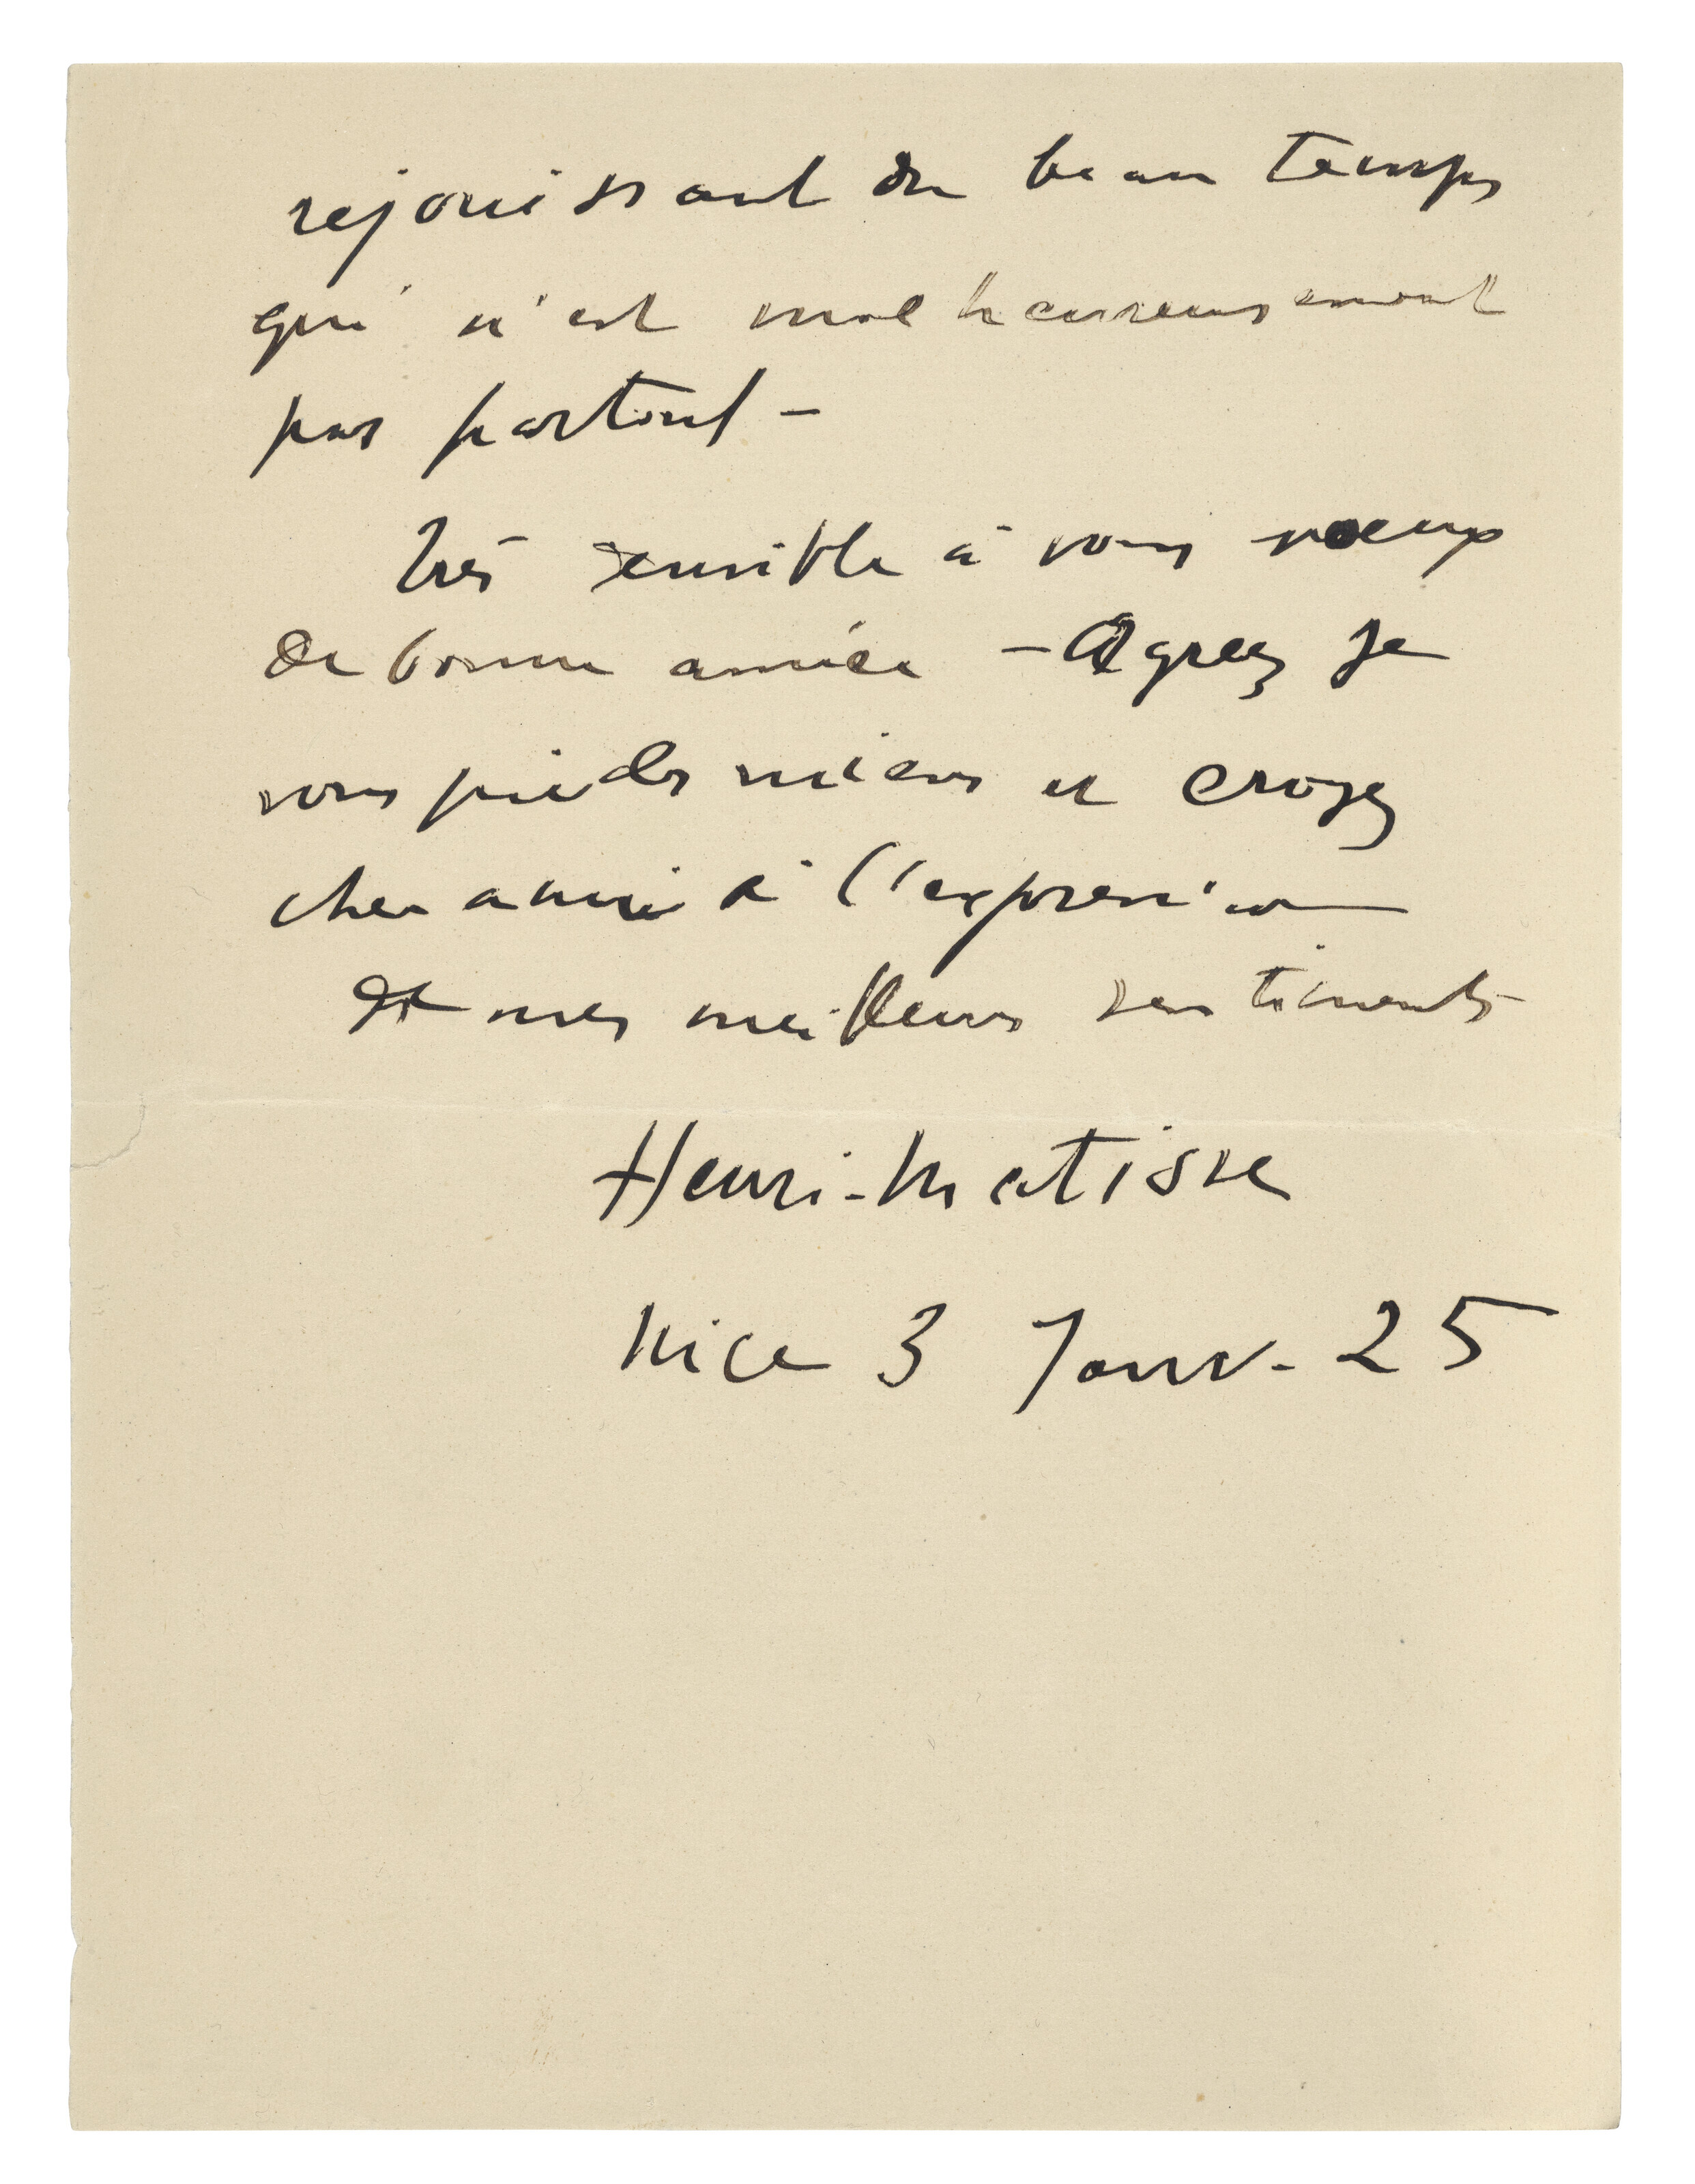 rejouissant du beau temps
qui n'est malheureusement
pas partout –
Très sensible à vos vœux
de bonne année – Agréez je
vous prie les miens et croyez
cher ami à l'expression
de mes meilleurs sentiments
Henri-Matisse
Nice 3 Janv. 25